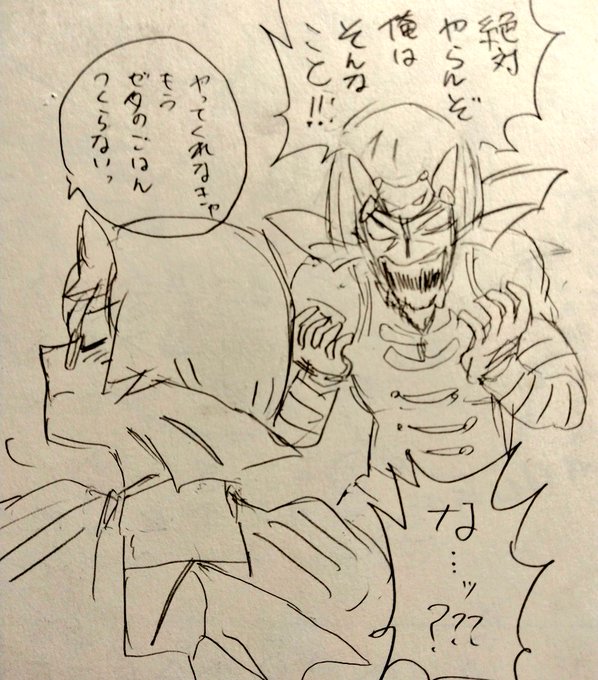 絶対
やらんぞ
俺は
そんな
こと!!!
やってくれなきゃ
もう
ゼタのごはん
つくらないっ
な…ッ
???